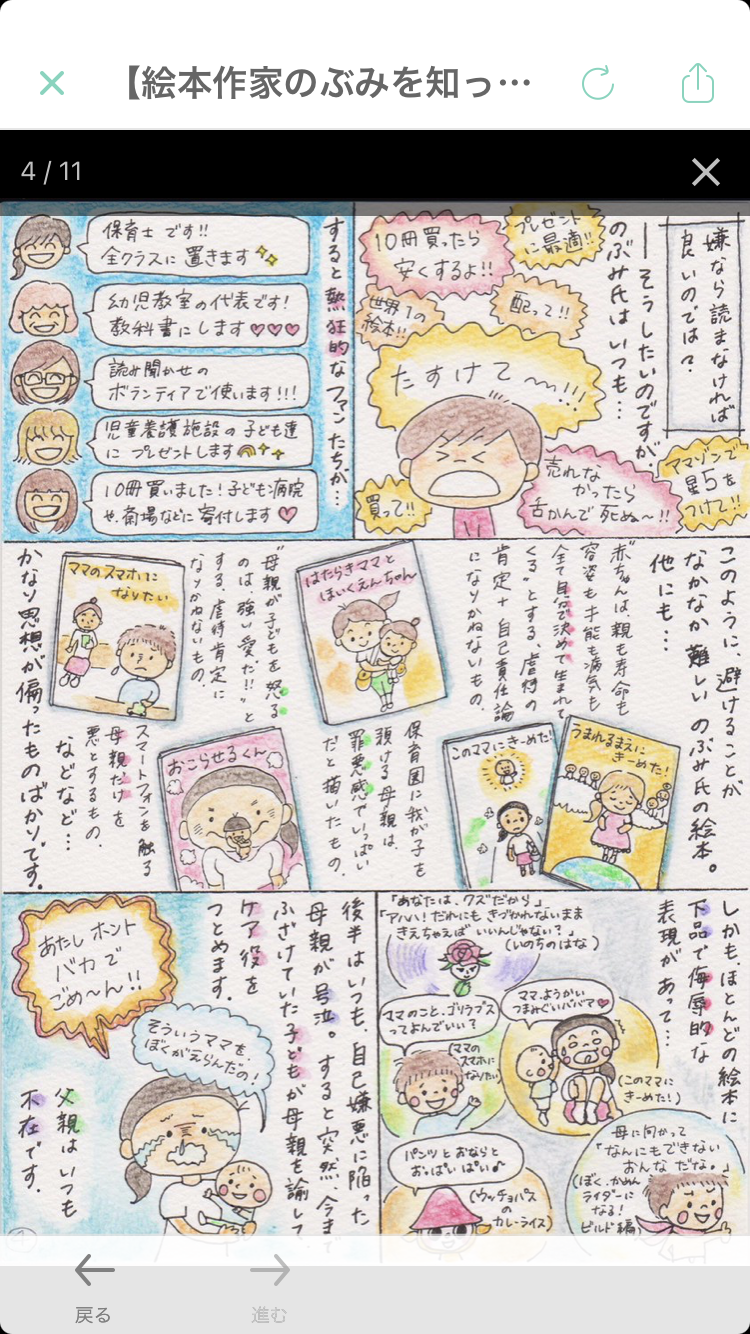 【絵本作家のぶみを知っ…
4 / 11
嫌なら読まなければ
良いのでは?
—そうしたいのですが、
のぶみ氏はいつも…
プレゼント
に最適!!
10冊買ったら
安くするよ!!
世界1の
絵本!!
配って!!
たすけて〜!!!
アマゾンで
星5を
つけて!!
売れな
かったら
舌かんで死ぬ〜!!
買って!!
すると熱狂的なファンたちが…
保育士です!!
全クラスに置きます✨
幼児教室の代表です!
教科書にします♡♡♡
読み聞かせの
ボランティアで使います!!!
児童養護施設の子ども達
にプレゼントします🌈✨
10冊買いました!子ども病院
や、斎場などに寄付します♡
このように、避けることが
なかなか難しいのぶみ氏の絵本。
他にも…
赤ちゃんは、親も寿命も
容姿も才能も病気も
全て自分で決めて生まれて
くる”とする、虐待の
肯定+自己責任論
になりかねないもの。
うまれるまえに
きーめた!
このママにきーめた!
はたらきママと
ほいくえんちゃん
保育園に我が子を
預ける母親は、
罪悪感でいっぱい
だと描いたもの。
“母親が子どもを怒る
のは強い愛だ!!”と
する、虐待肯定に
なりかねないもの。
おこらせるくん
ママのスマホに
なりたい
スマートフォンを触る
母親だけを
悪とするもの、
などなど…
かなり思想が偏ったものばかりです。
しかも、ほとんどの絵本に
下品で侮辱的な
表現があって…
「あなたは、クズだから」
「アハハ!だれにもきづかれないまま
きえちゃえばいいんじゃない?」
(いのちのはな)
ママ、ようかい
つまみぐいババア♡
(このママに
きーめた!)
ママのこと、ゴリラブス
ってよんでいい?
(ママの
スマホに
なりたい)
母に向かって
「なんにもできない
おんなだな。」
(ぼく、かめん
ライダーに
なる!
ビルド編)
パンツとおならと
おっぱいぱい♪
(ウッチョパス
の
カレーライス)
後半はいつも、自己嫌悪に陥った
母親が号泣。すると突然、今まで
ふざけていた子どもが母親を諭して
ケア役を
つとめます。
あたしホント
バカで
ごめ〜ん!!
そういうママを、
ぼくがえらんだの!
父親はいつも
不在です。
戻る
進む